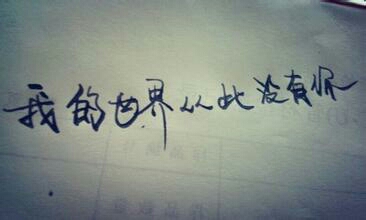 我的世界从此没有你